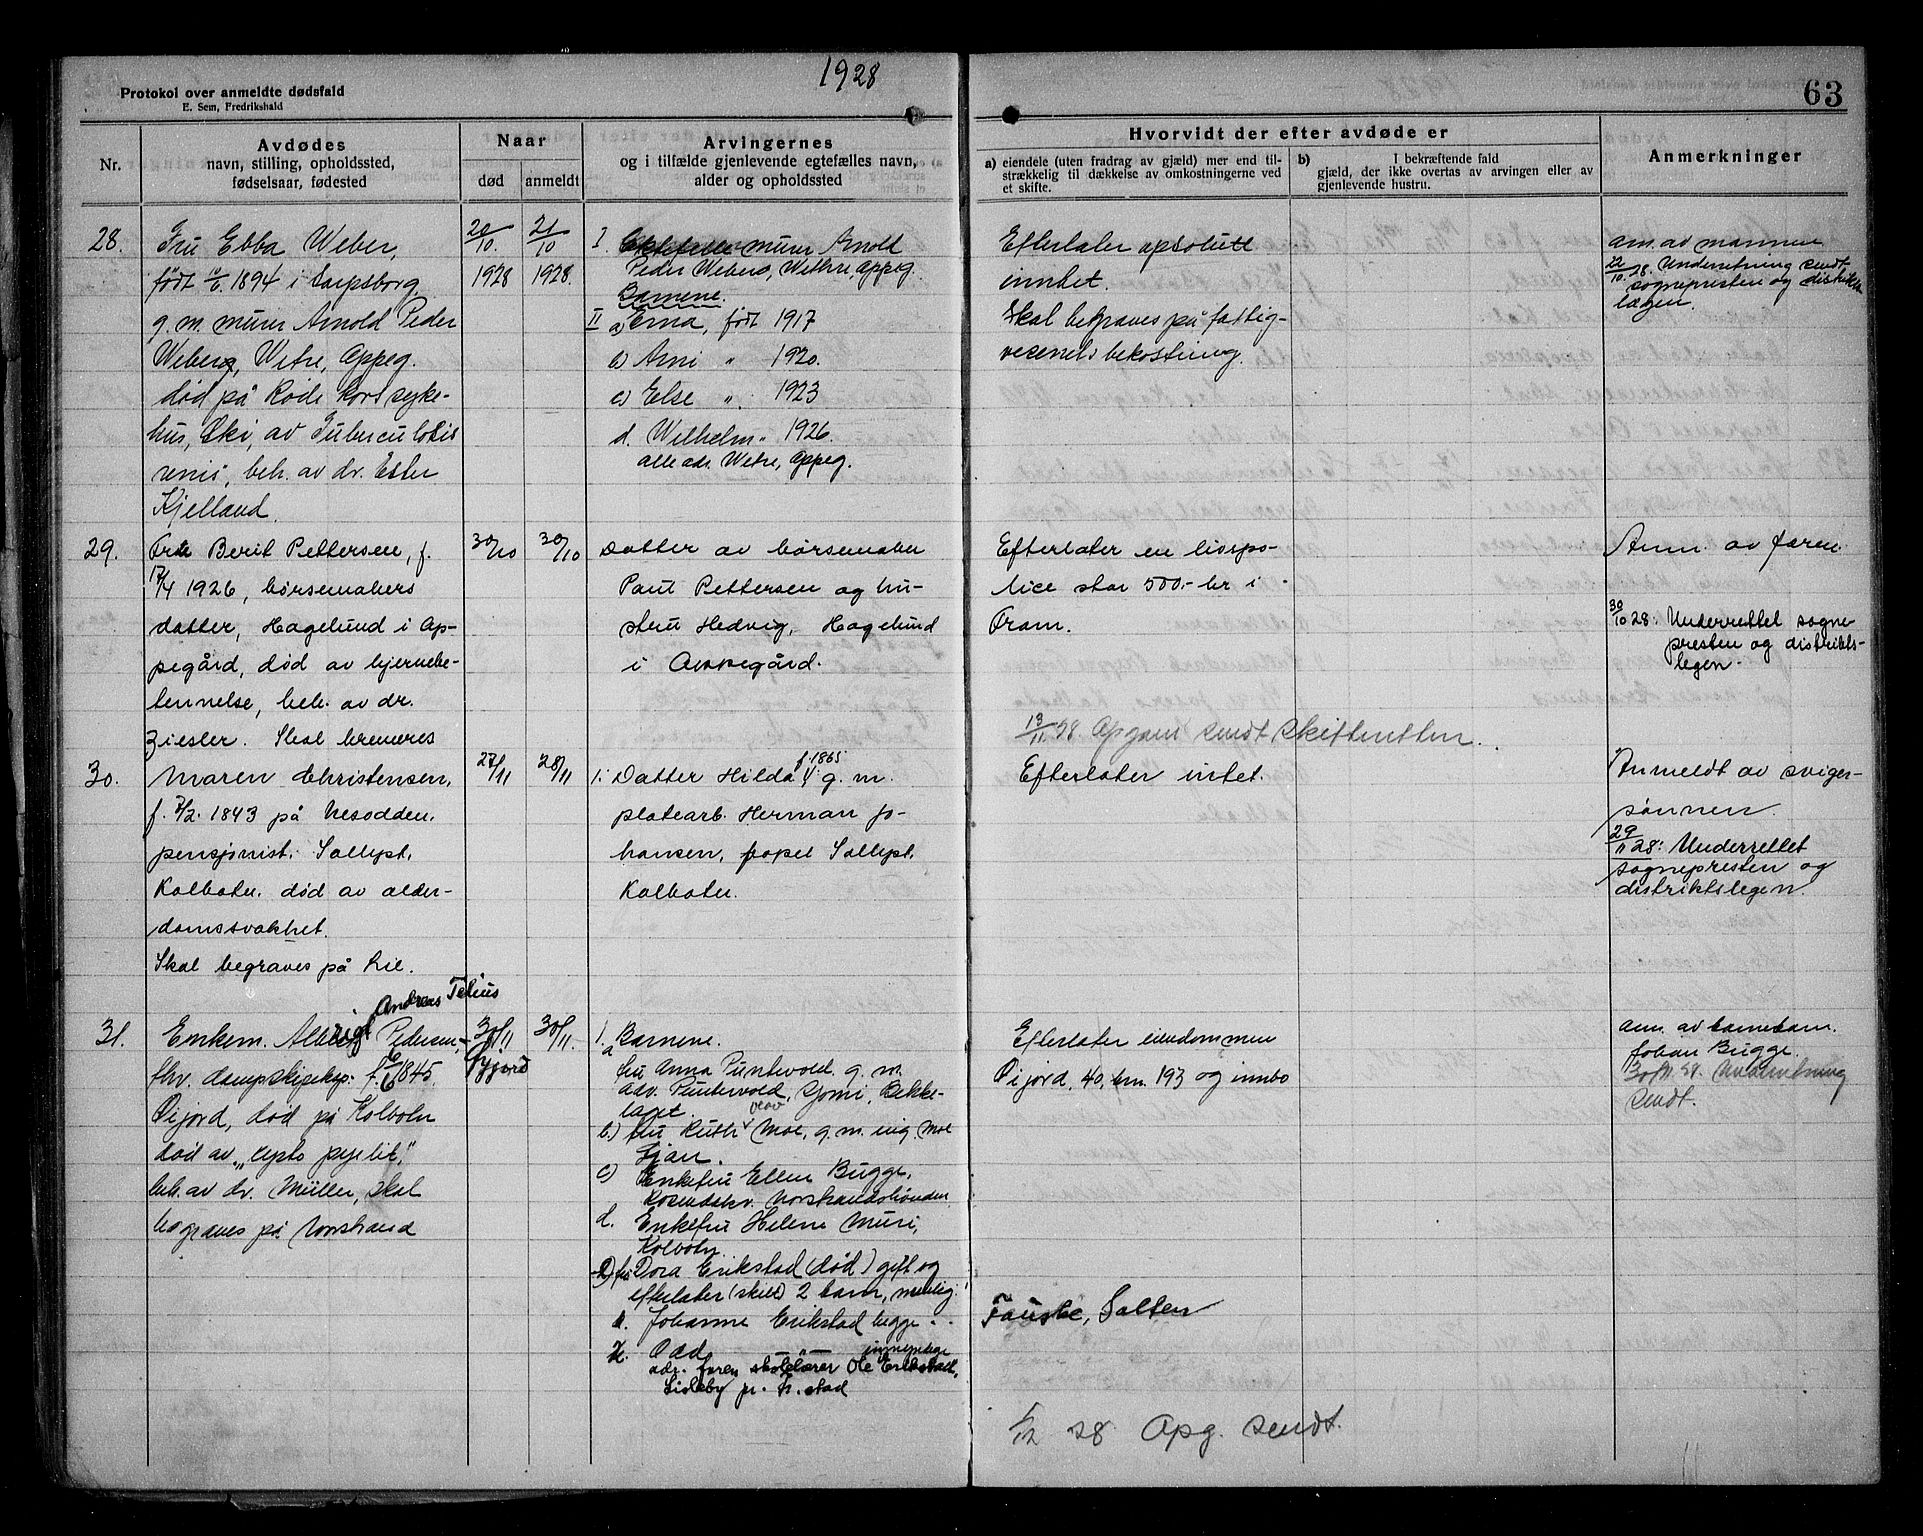 1928
63
Protokol over anmeldte dødsfald
E. Sem, Fredrikshald
Nr.
Avdødes
navn, stilling, opholdssted,
fødselsaar, fødested
Naar
død
anmeldt
Arvingernes
og i tilfælde gjenlevende egtefælles navn,
alder og opholdssted
Hvorvidt der efter avdøde er
a) eiendele (uten fradrag av gjæld) mer end til-
strækkelig til dækkelse av omkostningerne ved
et skifte.
b) I bekræftende fald
gjæld, der ikke overtas av arvingen eller av
gjenlevende hustru.
Anmerkninger
28.
Fru Ebba Weber,
født 1894 i Sarpsborg
g. m. murer Arnold Peder
Weberg, Wetre, Oppeg.
død på Røde Kors syke-
hus, Ski, av Tuberculosis
renis, beh. av dr. Ester
Kjelland.
20/10 1928
21/10 1928.
I. murer Arnold
Peder Weberg, Wethre, Oppeg.
Barnene.
II a) Erna, født 1917
b) Arni " 1920.
c) Else " 1923
d. Wilhelm " 1926.
alle adr. Wetre, Oppeg.
Efterlater absolutt
inntet.
Skal begraves på fattig-
vesenets bekostning.
anm. av mannen
22/10 28. Underretning sendt
sognepresten og distrikts
lægen.
29.
Berit Pettersen, f.
17/4 1926, børsemakers
datter, Hagelund i Op-
pegård, død av hjernebe-
tennelse, beh. av dr.
Ziesler. Skal kremeres
30/10
30/10
Datter av børsemaker
Paul Pettersen og hu-
stru Hedvig, Hagelund
i Oppegård.
Efterlater en livspo-
lice stor 500.- kr i
Fram.
13/11 28 Opgave sendt Skifteretten.
Anm. av faren.
30/10 28: Underrettet sogne-
presten og distrikts-
legen.
30.
Maren Christensen,
f. 2/2. 1843 på Nesodden.
pensjonist. Solløst,
Kolbotn. død av alder-
domssvakhet.
Skal begraves på Lie.
27/11
28/11
1. Datter Hilda f. 1865 g. m.
platearb. Herman Jo-
hansen, Solløst,
Kolbotn.
Efterlater intet.
Anmeldt av sviger-
sønnen.
29/11 28: Underrettet
sognepresten og
distriktslegen.
31.
Andreas
Enkem. Pedersen,
fhv. dampskipseksp. 1845.
Gyjord
Øijord, død på Kolbotn
død av
beh. av dr. Müller, skal
begraves på Norstrand
30/11
30/11.
1. Barnene.
a fru Anna Puntervold, g. m.
adv. Puntervold, Bekke-
laget.
b.) fru Ruth Moe, g. m. ing. Olav Moe
Ljan.
c) Enkefru Ellen Bugge,
Norstrandshøiden
d. Enkefru Helene Muri,
Kolbotn.
fru Dora Erikstad (død) gift og
efterlater (skilt) 2 barn, nemlig:
Johanne Erikstad begge
Odd
adr. faren skolelærer Ole Erikstad,
Lisleby pr. Fr.stad
Efterlater eiendommen
Øijord, 40, bn. 193 og innbo
Fauske, Salten
1/12 28 Opg. sendt.
anm. av barnebarn.
Johan Bugge.
30/11 28. Underretning
sendt.